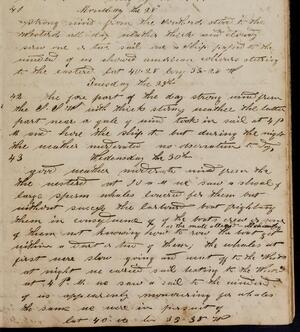 41 Monday the 28th
strong wind from the
all day weather thick and
saw one or two sail one a ship passed to the
windward of us showed american colours steering
to the eastward lat 40-28 long 33-26 W
Tuesday the 29th
42 the fore part of the day strong wind from
the S.S.W. with thick strong weather the latter
part near a gale of wind took in sail at 4 PM
and hove the ship to but during the night
the weather no observation to day
43 Wednesday the 30th
good weather moderate wind from the
the westward at 10 AM we saw a shoal of
large sperm whales lowered for them but
without success the Larboard boat frightening
them in consequence of the boats crew or some
of them not knowing how to row the boat got
within a dart or two of them; the whales at
first were slow going and went off to the Wind
at night we carried sail to the Wind
at 4 PM we saw a sail to the windward
of us apparently manoeuvring for whales
the same we were in pursuit of
lat 40 long 32-38 W